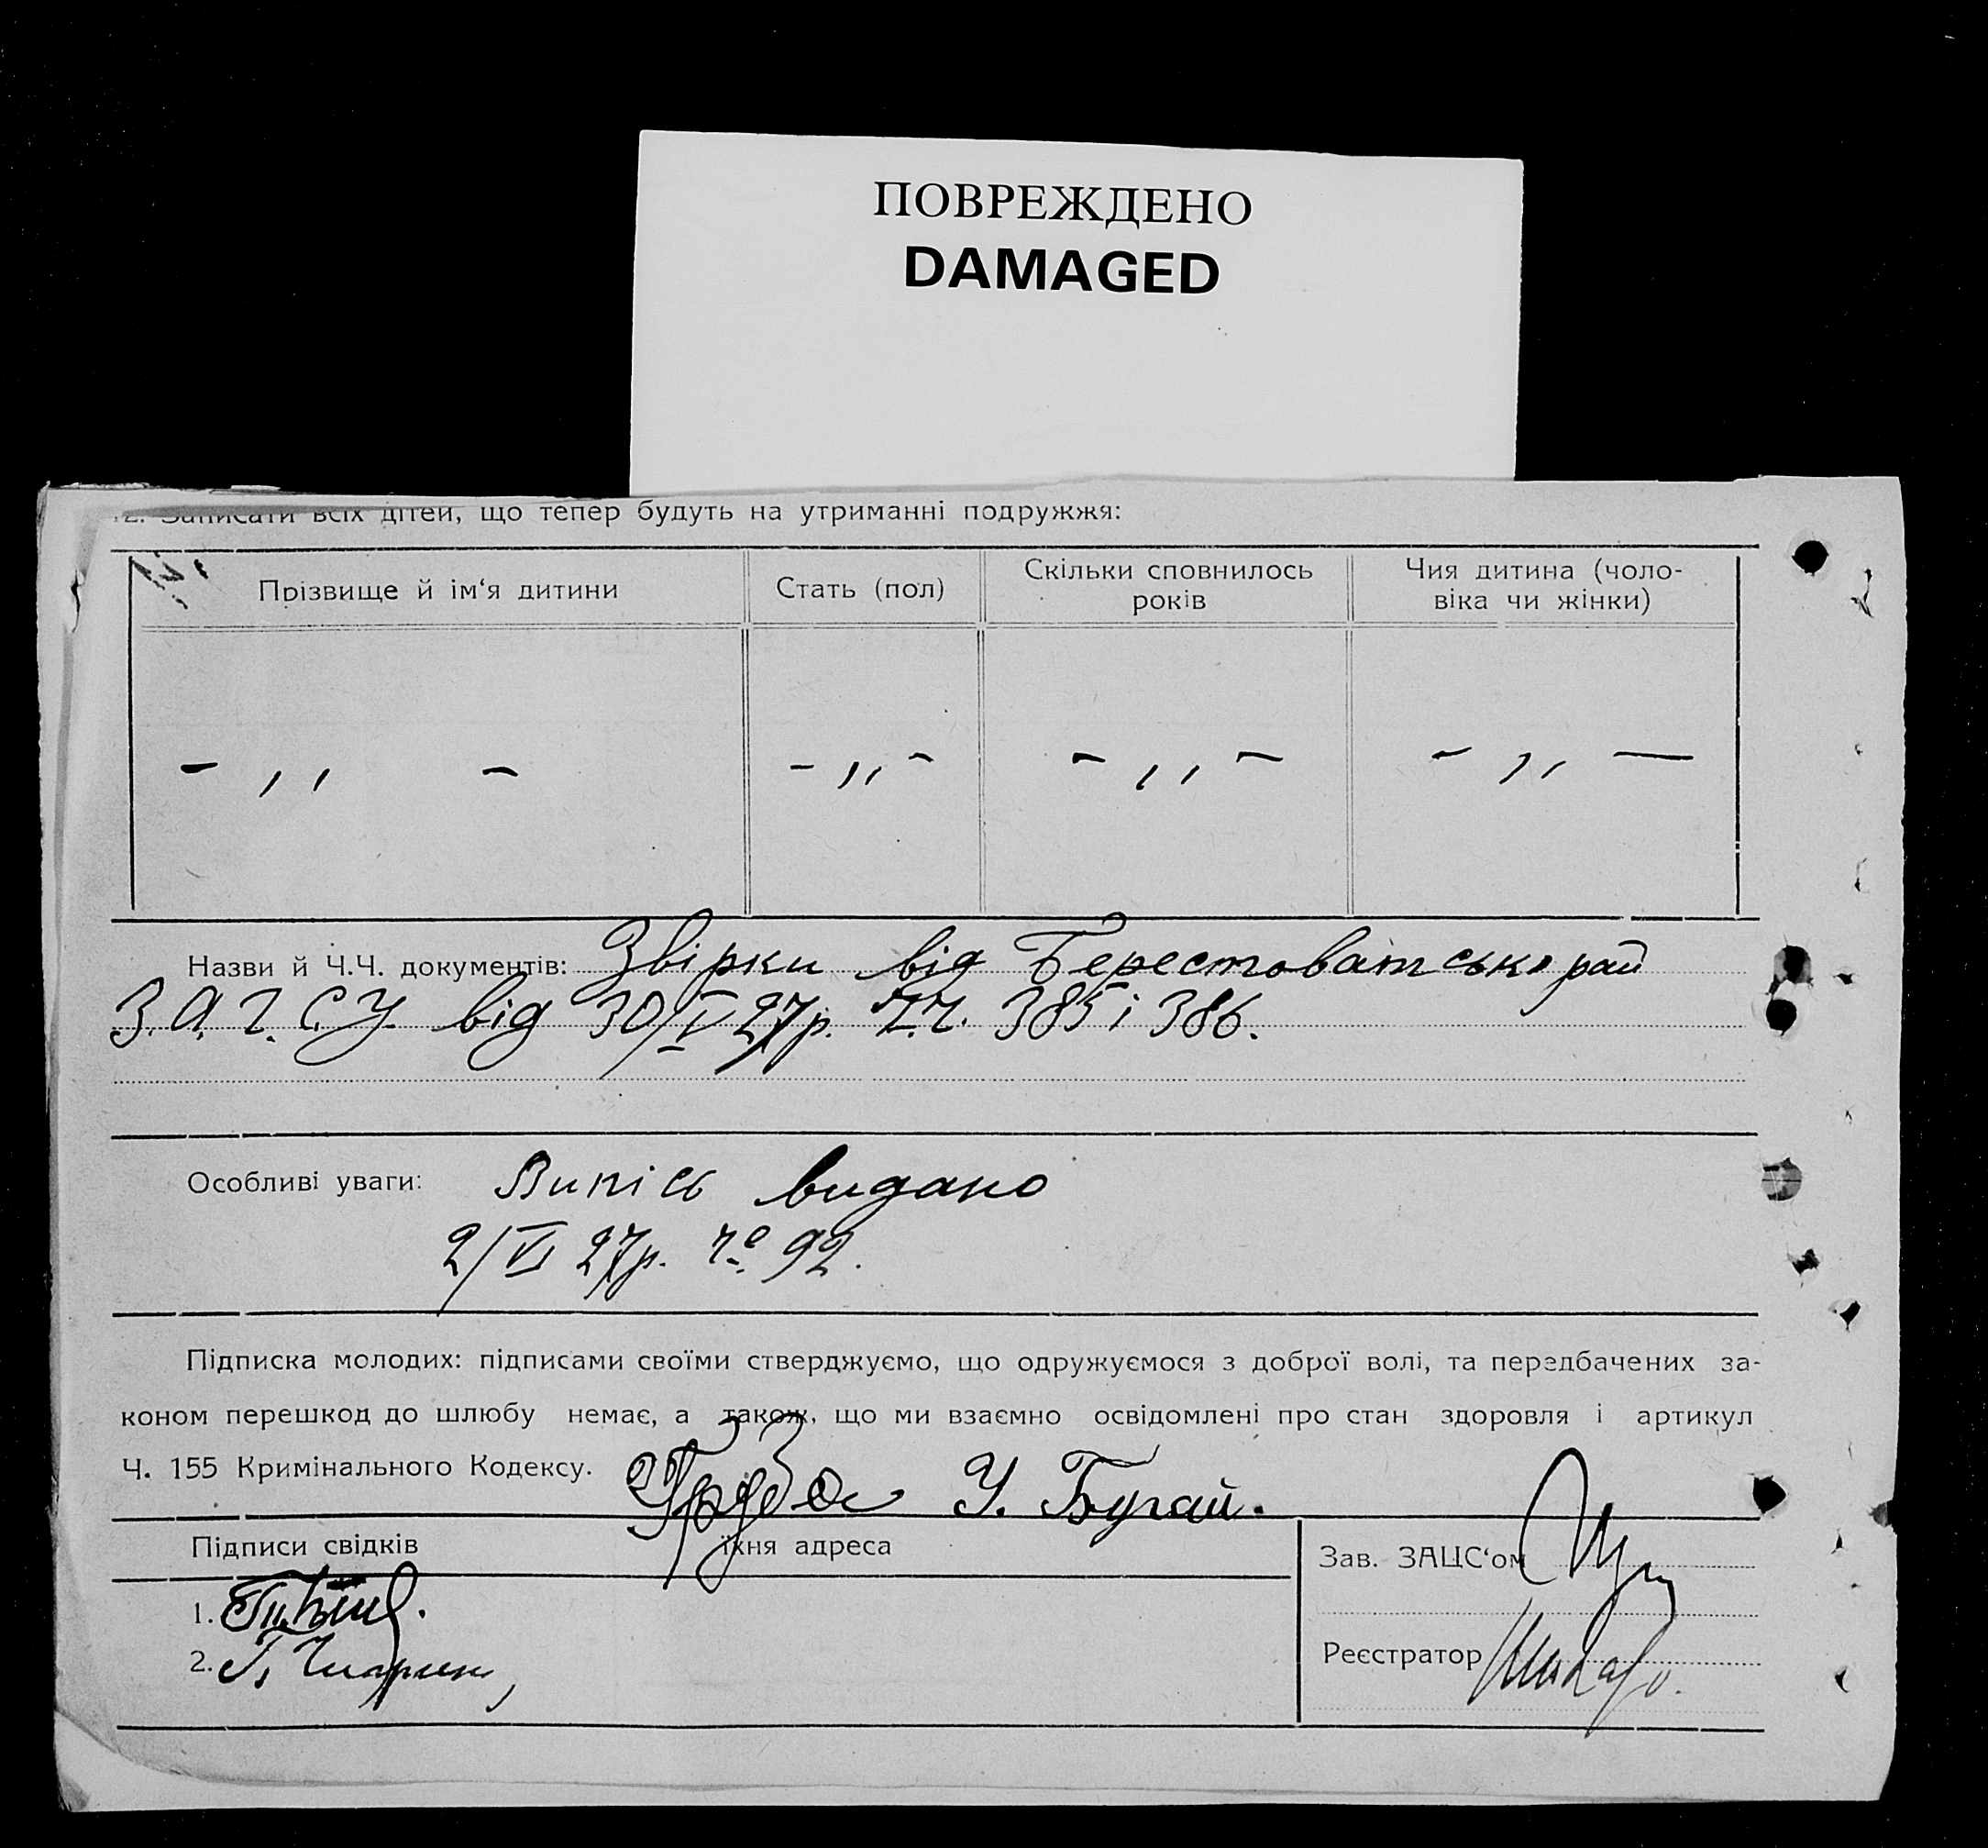 ПОВРЕЖДЕНО
DAMAGED
12. Записати всіх дітей, що тепер будуть на утриманні подружжя:
Прізвище й ім‘я дитини Стать (пол) Скільки сповнилось років Чия дитина (чоловіка чи жінки)
- ,, - - ,, - - ,, - - ,, —
Назви й Ч.Ч. документів: Звірки від Берестоватсько рай
З.А.Г.С.У. від 30/V 27р. Ч.Ч. 385 і 386.
Особливі уваги: Випісь видано
2/VI 27р. 92.
Підписка молодих: підписами своїми стверджуємо, що одружуємося з доброї волі, та передбачених за-
коном перешкод до шлюбу немає, а також, що ми взаємно освідомлені про стан здоровля і артикул
Ч. 155 Кримінального Кодексу. У. Бугай.
Підписи свідків їхня адреса Зав. ЗАЦС‘ом
1.
2. Реєстратор